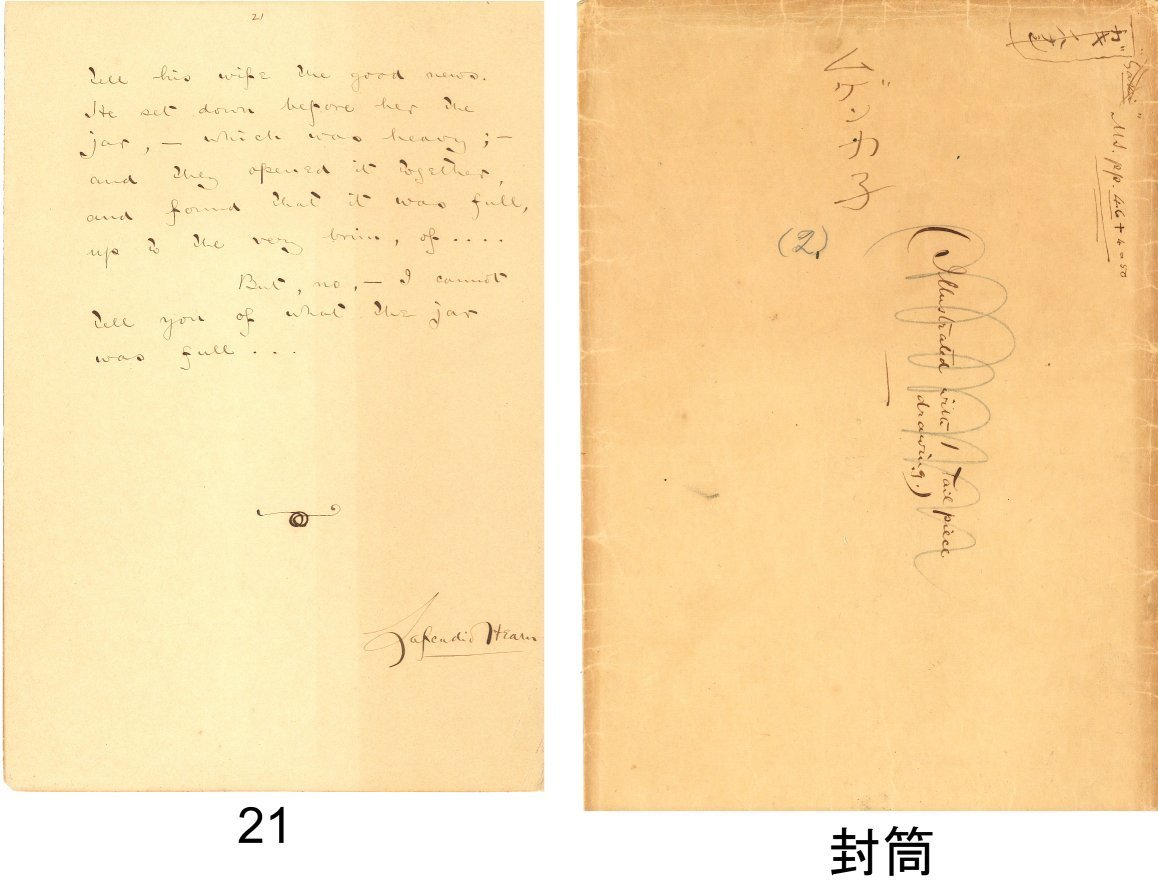 21
tell his wife the good news.
He set down before her the
jar, — which was heavy; —
and they opened it together,
and found that it was full,
up to the very brim, of ....
But, no, — I cannot
tell you of what the jar
was full ...
Lafcadio Hearn
21
"Gaki" MS. pp. 46 + 4 = 50
(2)
(Illustrated with 1 Tail piece
drawing.)
封筒